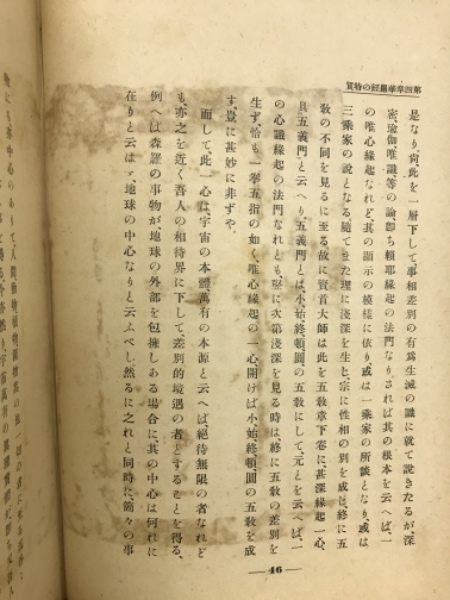 第四章華嚴經の特質
是なり、尙、此を一層下して、事相差別の有爲生滅の識に就て說きたるが、深
密、瑜伽、唯識、等の論、卽ち賴耶緣起の法門なりされば其の根本を云へば、一
の唯心緣起なれど、其の顯示の模樣に依り或は一乘家の所談となり、或は
三乘家の說となる。隨てまた理に淺深を生と、宗に性相の別を成し、終に五
敎の不同を見るに至る故に賢首大師は此を五敎章下卷に、甚深緣起一心、
具五義門と云へり、五義門とは、小、始、終、頓、圓の五敎にして、元とを云へば、一
の心識緣起の法門なれとも、竪に次第淺深を見る時は終に五敎の差別を
生ず、恰も一拳五指の如く、唯心緣起の一心、開けば小、始、終、頓、圓の五敎を成
す、豈に甚妙に非ずや。
而して、此一心は、宇宙の本體、萬有の本源と云へば絕待無限の者なれど
も、亦之を近く吾人の相待界に下して、差別的境遇の者とすることを得る、
例へば森羅の事物が、地球の外部を包擁しある場合に、其の中心は何れに
在りと云はゞ、地球の中心なりと云ふべし然るに之れと同時に、箇々の事
46